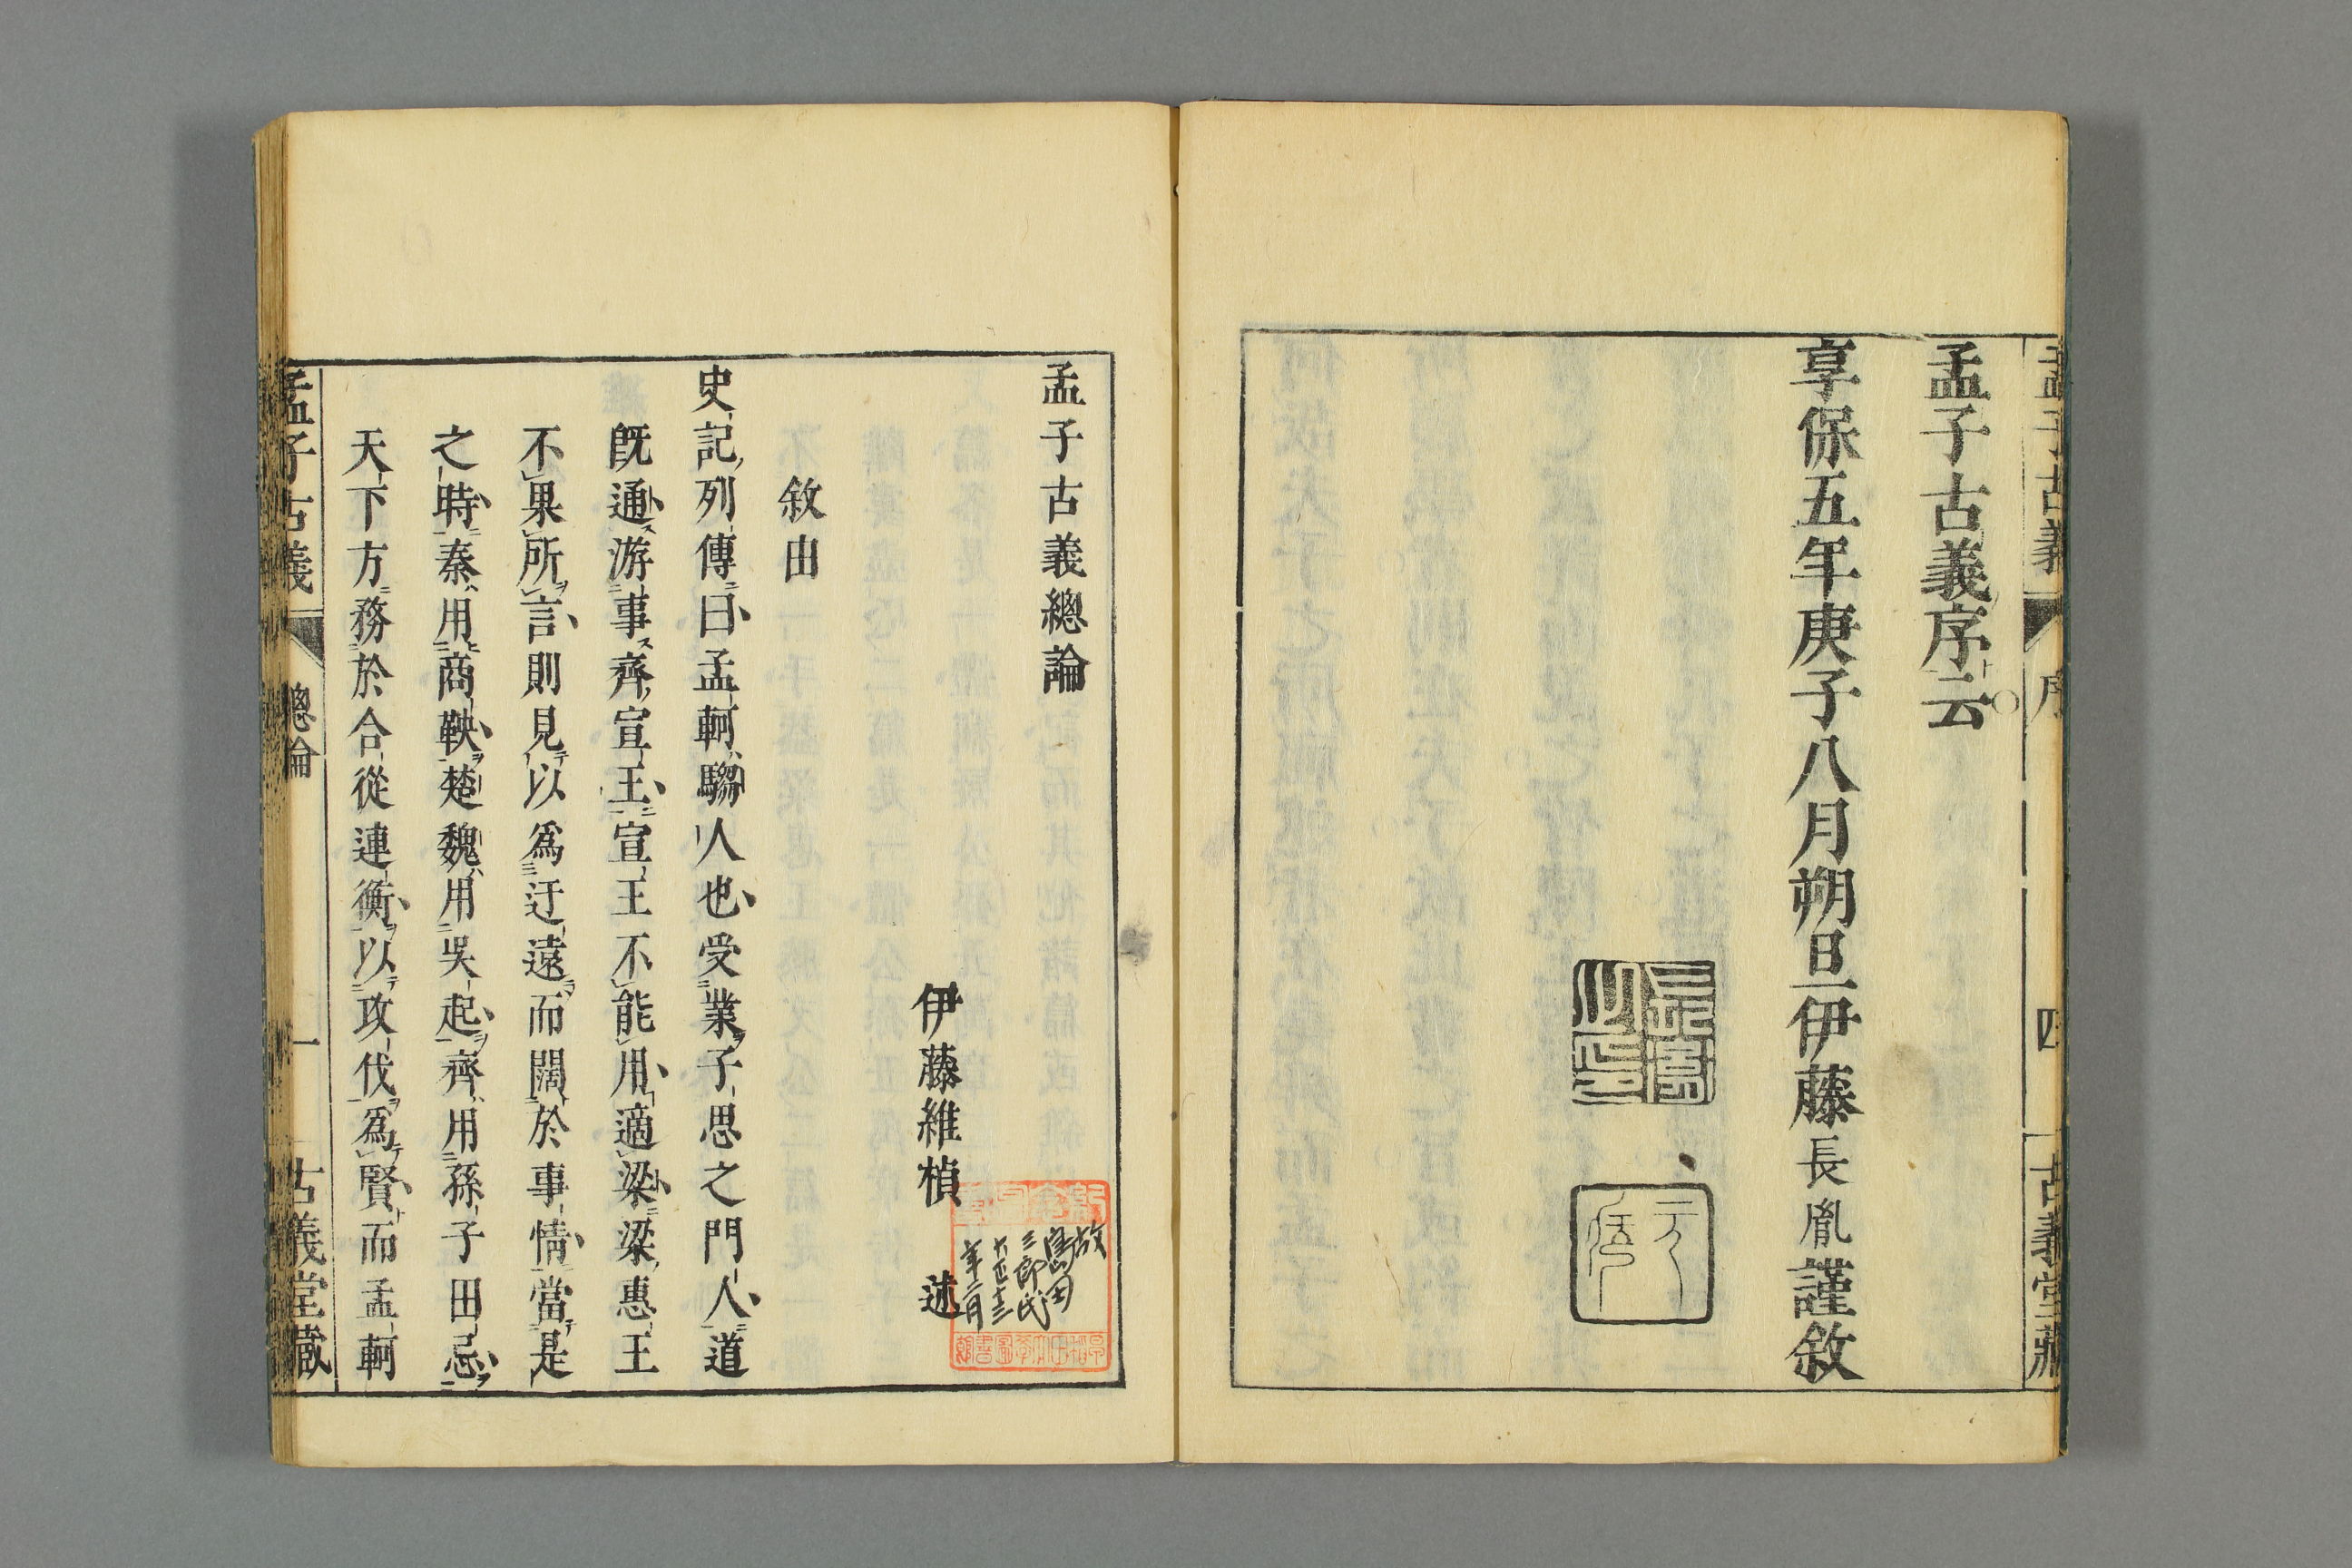 孟子古義序云
享保五年庚子八月朔旦伊藤長胤謹敘
孟子古義
序
四
古義堂藏
孟子古義總論
伊藤維楨 述
敘由
史記列傳曰孟軻騶人也受業子思之門人道
既通游事齊宣王宣王不能用適梁梁惠王
不果所言則見以爲迂遠而闊於事情當是
之時秦用商鞅楚魏用吳起齊用孫子田忌
天下方務於合從連衡以攻伐爲賢而孟軻
孟子古義
總論
一
古義堂藏
故
三郎氏
大正十三
年二月